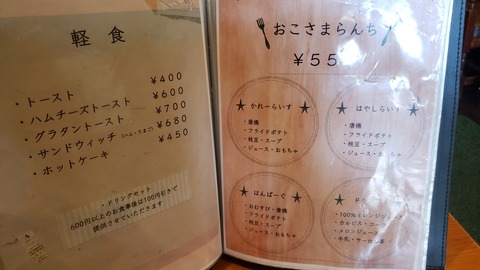 軽食
・トースト ¥400
・ハムチーズトースト ¥600
・グラタントースト ¥700
・サンドウィッチ (ハム・たまご) ¥680
・ホットケーキ ¥450
・ドリンクセット
600円以上のお食事後は100円引きで
提供させていただきます
おこさまらんち
¥55
かれーらいす
・唐揚
・フライドポテト
・枝豆・スープ
・ジュース・おもちゃ
はやしらいす
・唐揚
・フライドポテト
・枝豆・スープ
・ジュース・おもちゃ
はんばーぐ
・おむすび・唐揚
・フライドポテト
・枝豆・スープ
・ジュース・おもちゃ
・100%オレンジジュース
・カルピス・コーラ
・メロンジュース
・牛乳・ウーロン茶